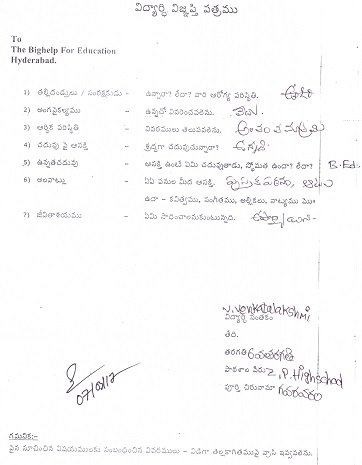 విద్యార్థి విజ్ఞప్తి పత్రము
To
The Bighelp For Education
Hyderabad.
1) తల్లిదండ్రులు / సంరక్షకుడు - ఉన్నారా? లేదా? వారి ఆరోగ్య పరిస్థితి.
2) అంగవైకల్యము - ఉన్నచో వివరించవలెను.
3) ఆర్థిక పరిస్థితి - వివరములు తెలుపవలెను.
4) చదువు పై ఆసక్తి - శ్రద్ధగా చదువుచున్నారా?
5) ఉన్నతచదువు - ఆసక్తి ఉంటే ఏమి చదువుతాడు, స్తోమత ఉందా? లేదా? B.Ed.
6) అలవాట్లు - ఏఏ పనుల మీద ఆసక్తి. పుస్తక పఠనం,
ఉదా - కవిత్వము, సంగీతము, అల్లికలు, నాట్యము మొ||
7) జీవితాశయము - ఏమి సాధించాలనుకుంటున్నది.
V. Venkatalakshmi
విద్యార్థి సంతకం
తేది.
తరగతి
పాఠశాల పేరు Z.P. Highschool
పూర్తి చిరునామా గవరవరం
07/01/17
గమనిక:-
పైన సూచించిన విషయములకు సంబంధించిన వివరములు - విడిగా తెల్లకాగితముపై వ్రాసి ఇవ్వవలెను.